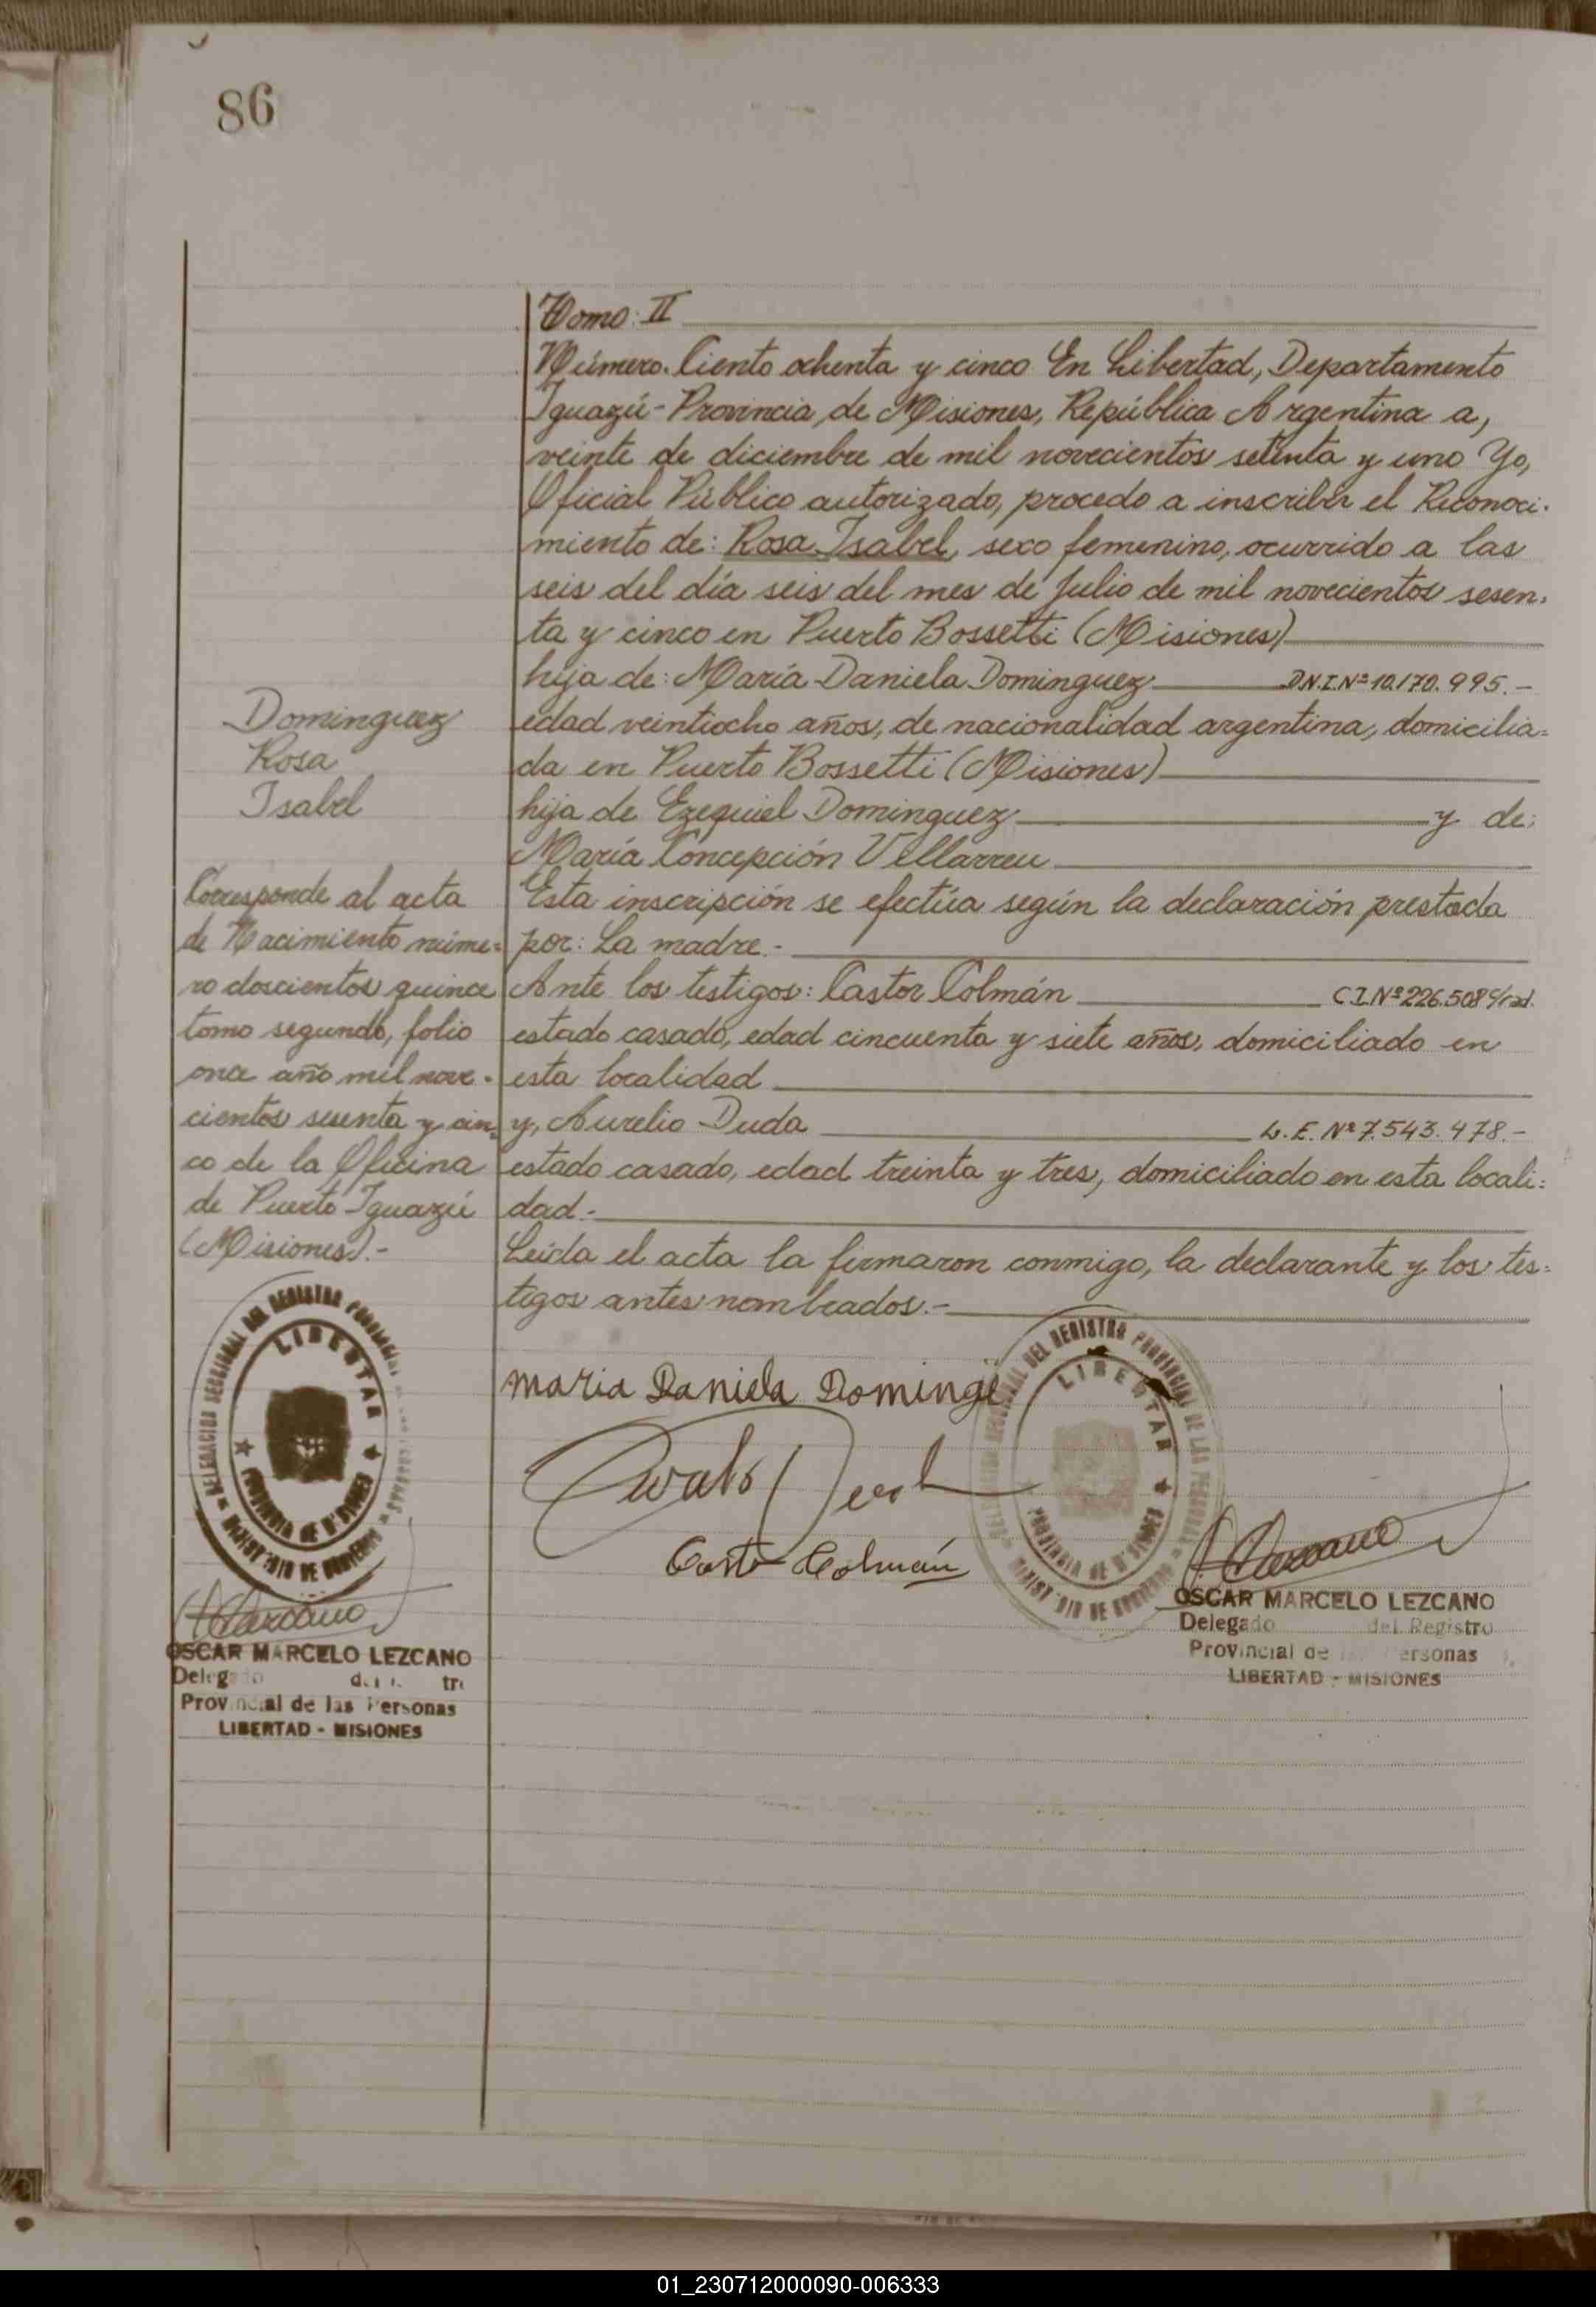 86
Tomo: II
Número. Ciento ochenta y cinco En Libertad, Departamento
Iguazú - Provincia, de Misiones, República Argentina a,
veinte de diciembre de mil novecientos setenta y uno Yo,
Oficial Público autorizado, procedo a inscribir el Reconoci-
miento de: Rosa Isabel, sexo femenino, ocurrido a las
seis del día seis del mes de Julio de mil novecientos sesen-
ta y cinco en Puerto Bossetti (Misiones)
hija de: María Daniela Dominguez D.N.I. Nº 10.170.995.-
edad veintiocho años, de nacionalidad argentina, domicilia=
da en Puerto Bossetti (Misiones)
hija de Ezequiel Dominguez y de:
María Concepción Villarreu
Esta inscripción se efectúa según la declaración prestada
por: La madre.-
Ante los testigos: Castor Colmán C.I. Nº 226.508
estado casado, edad cincuenta y siete años, domiciliado en
esta localidad
y, Aurelio Duda L.E. Nº 7.543.478.-
estado casado, edad treinta y tres, domiciliado en esta locali=
dad.-
Leída el acta la firmaron conmigo, la declarante y los tes=
tigos antes nombrados.-
Dominguez
Rosa
Isabel
Corresponde al acta
de Nacimiento núme=
ro doscientos quince
tomo segundo, folio
once año mil nove-
cientos sesenta y cin=
co de la Oficina
de Puerto Iguazú
(Misiones).-
LIBERTAD
PROVINCIA DE MISIONES
OSCAR MARCELO LEZCANO
Provincial de las Personas
LIBERTAD - MISIONES
maria Daniela Dominge
Castor Colmán
LIBERTAD
PROVINCIA DE MISIONES
OSCAR MARCELO LEZCANO
Delegado del Registro
Provincial de las Personas
LIBERTAD - MISIONES
01_230712000090-006333